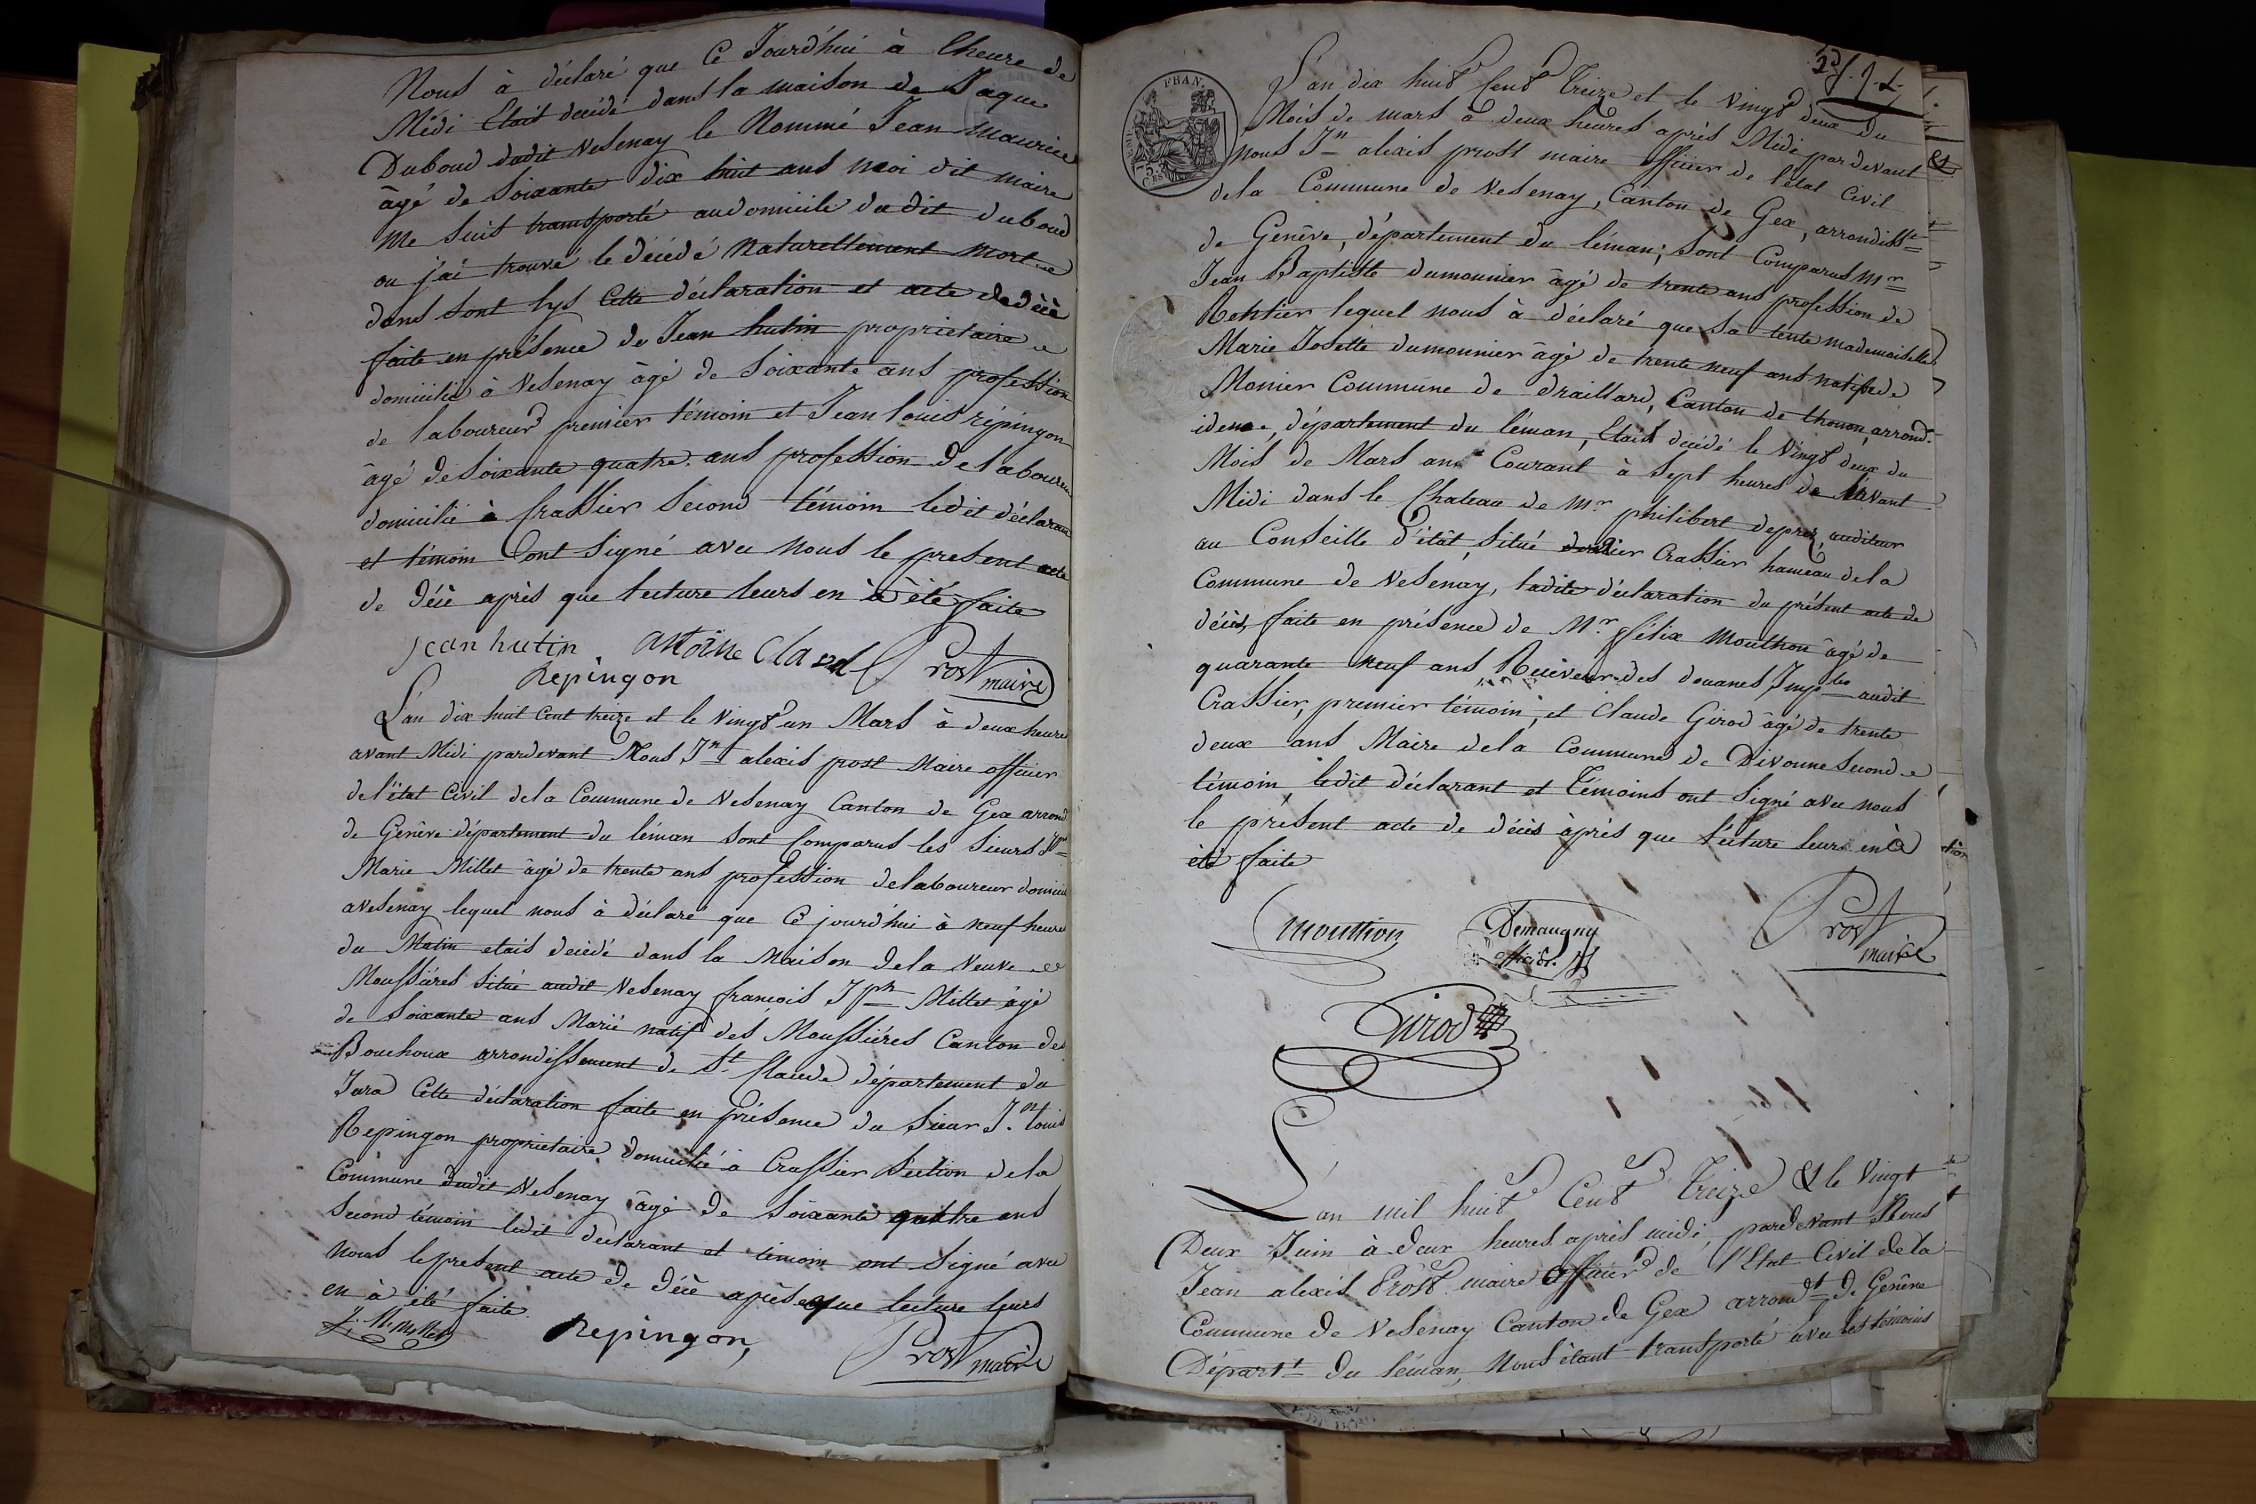 Nous à déclaré que Ce Jourd'hui à lheure de
Midi Etait decédé dans la maison de Jaque
Duboud dudit Vesenay le Nommé Jean Maurice
âgé de Soixante dix huit ans moi dit maire
me Suis transporté audomicile du dit duboud
ou j'ai trouve le décédé naturellement mort
dans sont lys Cette déclaration et acte de décè
faite en présence de Jean hutin proprietaire
domicilié à Vesenay âgé de Soixante ans profession
de laboureur premier témoin et Jean louis répingon
âgé de Soixante quatre ans profession de laboureur
domicilié à Crassier Second témoin ledit déclarant
et témoin Sont Signé avec nous le present acte
de Décè après que lecture leurs en à été faite
jean hutin antoine Claud Prost
Repingon maire
L'an dix huit Cent treize et le Vingt un Mars à deux heure
avant Midi pardevant Nous Jn alexis prost Maire officier
de l'état Civil dela Commune de Vesenay Canton de Gex arrond
de Genêve département du léman Sont Comparus les Sieurs Jn
Marie Millet âgé de trente ans profession delaboureur domicilié
aVesenay lequel nous à déclaré que Ce jourd'hui à neuf heure
du Matin etais decédé dans la Maison dela Veuve
Moussiéres Situé audit Vesenay francois Jph Millet âgé
de Soixante ans Marié natif des Moussiéres Canton de
Bouchoux arrondissement de St Claude département du
Jura Cette déclaration faite en présence du Sieur Jn louis
Repingon proprietaire domicilié à Crassier Section dela
Commune dudit Vesenay âgé de Soixante quatre ans
Second témoin ledit déclarant et témoin ont Signé avec
nous le present acte de Décè après que lecture leurs
en à été faite
J. M. Millet Repingon, Prost
maire
L'an dix huit Cent Treize et le Vingt deux du
Mois de mars à deux heures après Midi par devant
nous Jn alexis prost maire officier de l'état Civil
dela Commune de Vesenay, Canton de Gex, arrondisst
de Genêve, département du léman; Sont Comparus Mr
Jean Baptiste dumounier âgé de trente ans profession de
Rentier lequel nous à déclaré que Sa tente mademoiselle
Marie Josette dumounier âgé de trente neuf ans native de
Monier Commune de draillard, Canton de thonon, arrond.
idem, département du léman, Etait decédé le Vingt deux du
Mois de Mars an Courant à Sept heures de
Midi dans le Chateau de Mr philibert deprez, auditeur
au Conseille d'état, Situé Crassier hameau dela
Commune de Vesenay, ladite déclaration du présent acte de
décès, faite en présence de Mr félix Mouthon âgé de
quarante neuf ans Reciveur des douanes Imples audit
Crassier, premier témoin, et Claude Girod âgé de trente
deux ans Maire dela Commune de Divonne Second
témoin, ledit déclarant et Témoins ont Signé avec nous
le présent acte de décès àprès que lecture leurs en à
été faite
Mouthon Demaugny Prost
officier maire
Girod
L'an mil huit Cent Treize & le Vingt
Deux Juin à deux heures après midi, pardevant Nous
Jean alexis Prost maire officier de l'Etat Civil de la
Commune de Vesenay Canton de Gex arrondt de Genêve
Départt du léman, Nous étant transporté avec les témoins